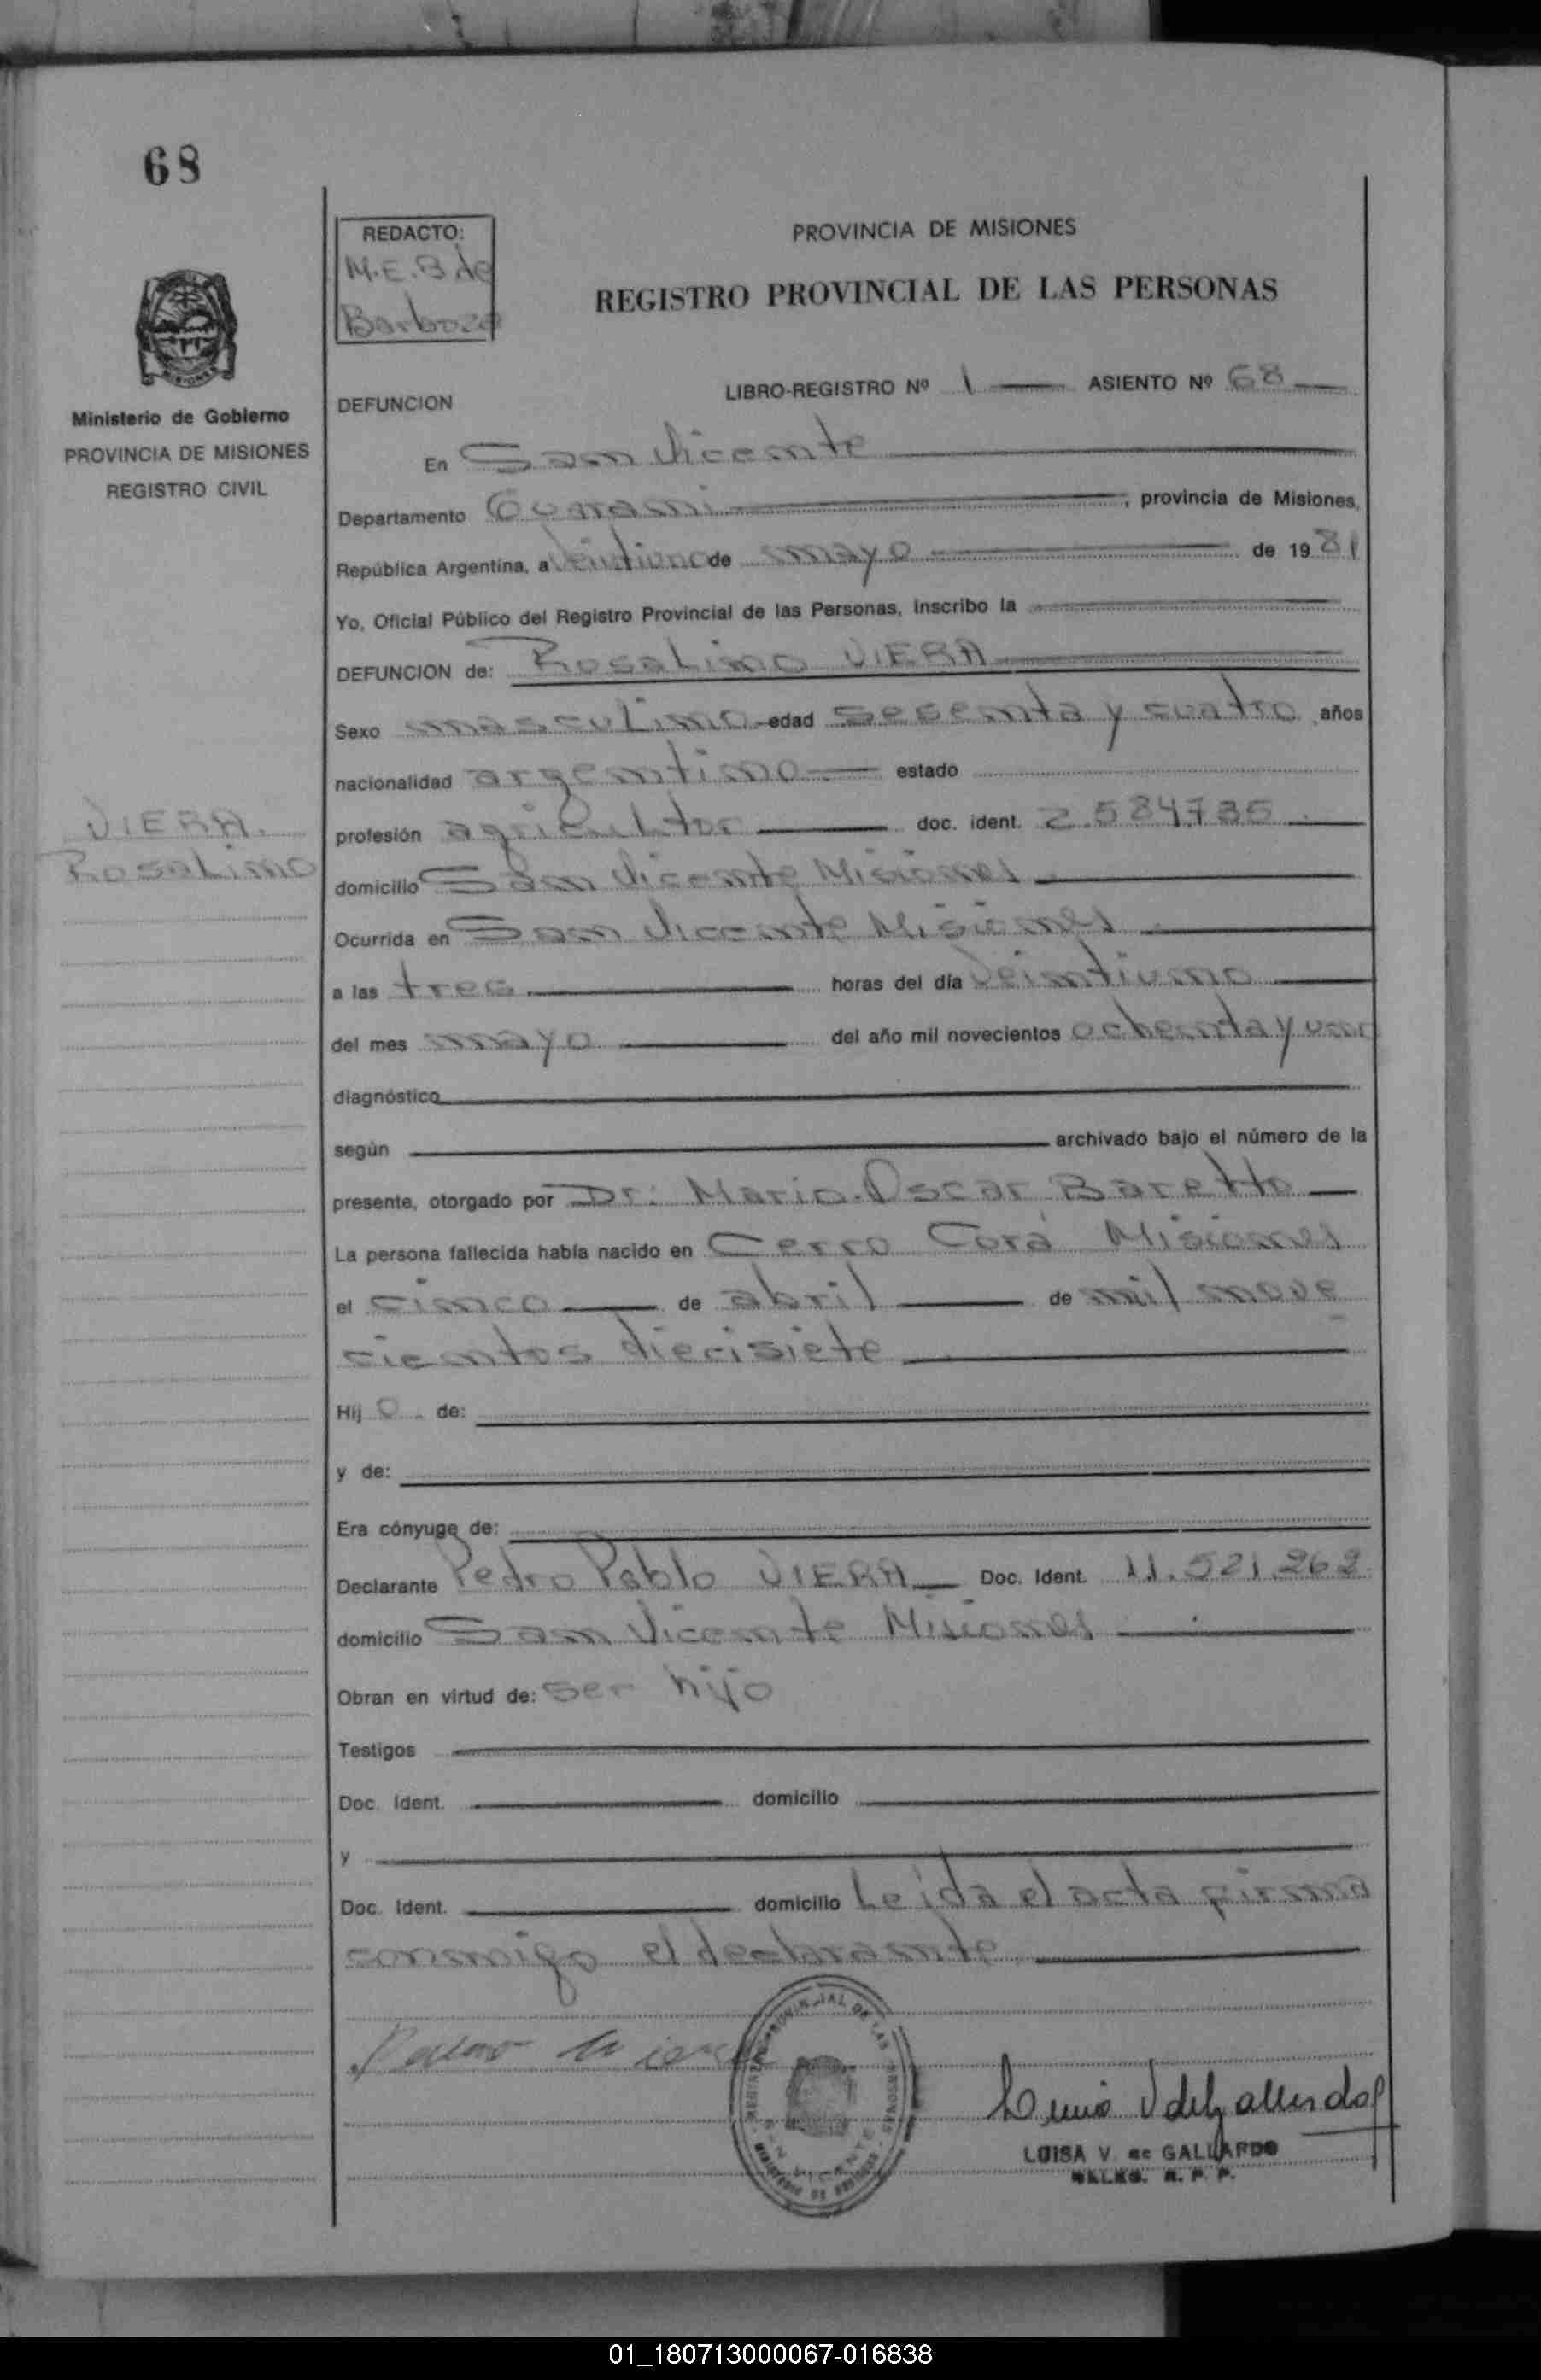 68
REDACTO:
M.E.B de
Barboza
PROVINCIA DE MISIONES
REGISTRO PROVINCIAL DE LAS PERSONAS
MISIONES
Ministerio de Gobierno
PROVINCIA DE MISIONES
REGISTRO CIVIL
VIERA.
Rosalino
DEFUNCION LIBRO-REGISTRO Nº 1 ASIENTO Nº 68
En San Vicente
Departamento Guarani, provincia de Misiones,
República Argentina, a Veintiuno de mayo de 1981
Yo, Oficial Público del Registro Provincial de las Personas, inscribo la
DEFUNCION de: Rosalino VIERA
Sexo masculino edad sesenta y cuatro años
nacionalidad argentino estado
profesión agricultor doc. ident. 2.584.735
domicilio San Vicente Misiones
Ocurrida en San Vicente Misiones
a las tres horas del día Veintiuno
del mes mayo del año mil novecientos ochenta y uno
diagnóstico
según archivado bajo el número de la
presente, otorgado por Dr: Mario Oscar Baretto
La persona fallecida había nacido en Cerro Corá Misiones
el cinco de abril de mil nove
cientos diecisiete
Hij o de:
y de:
Era cónyuge de:
Declarante Pedro Pablo VIERA Doc. Ident. 11.521.262
domicilio San Vicente Misiones
Obran en virtud de: ser hijo
Testigos
Doc. Ident. domicilio
y
Doc. Ident. domicilio Leída el acta firma
conmigo el declarante
LUISA V. de GALLARDO
R. P. P.
01_180713000067-016838